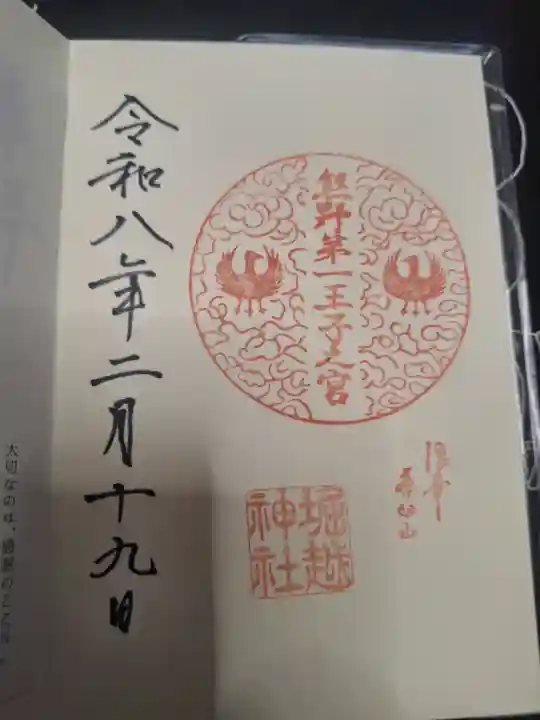 熊野第一王子之宮
堀越
神社
茶臼山
令和八年二月十九日
大切なのは、